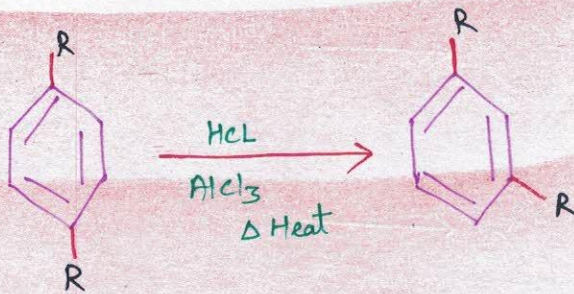 R
R
HCL
AlCl3
Δ Heat
R
R